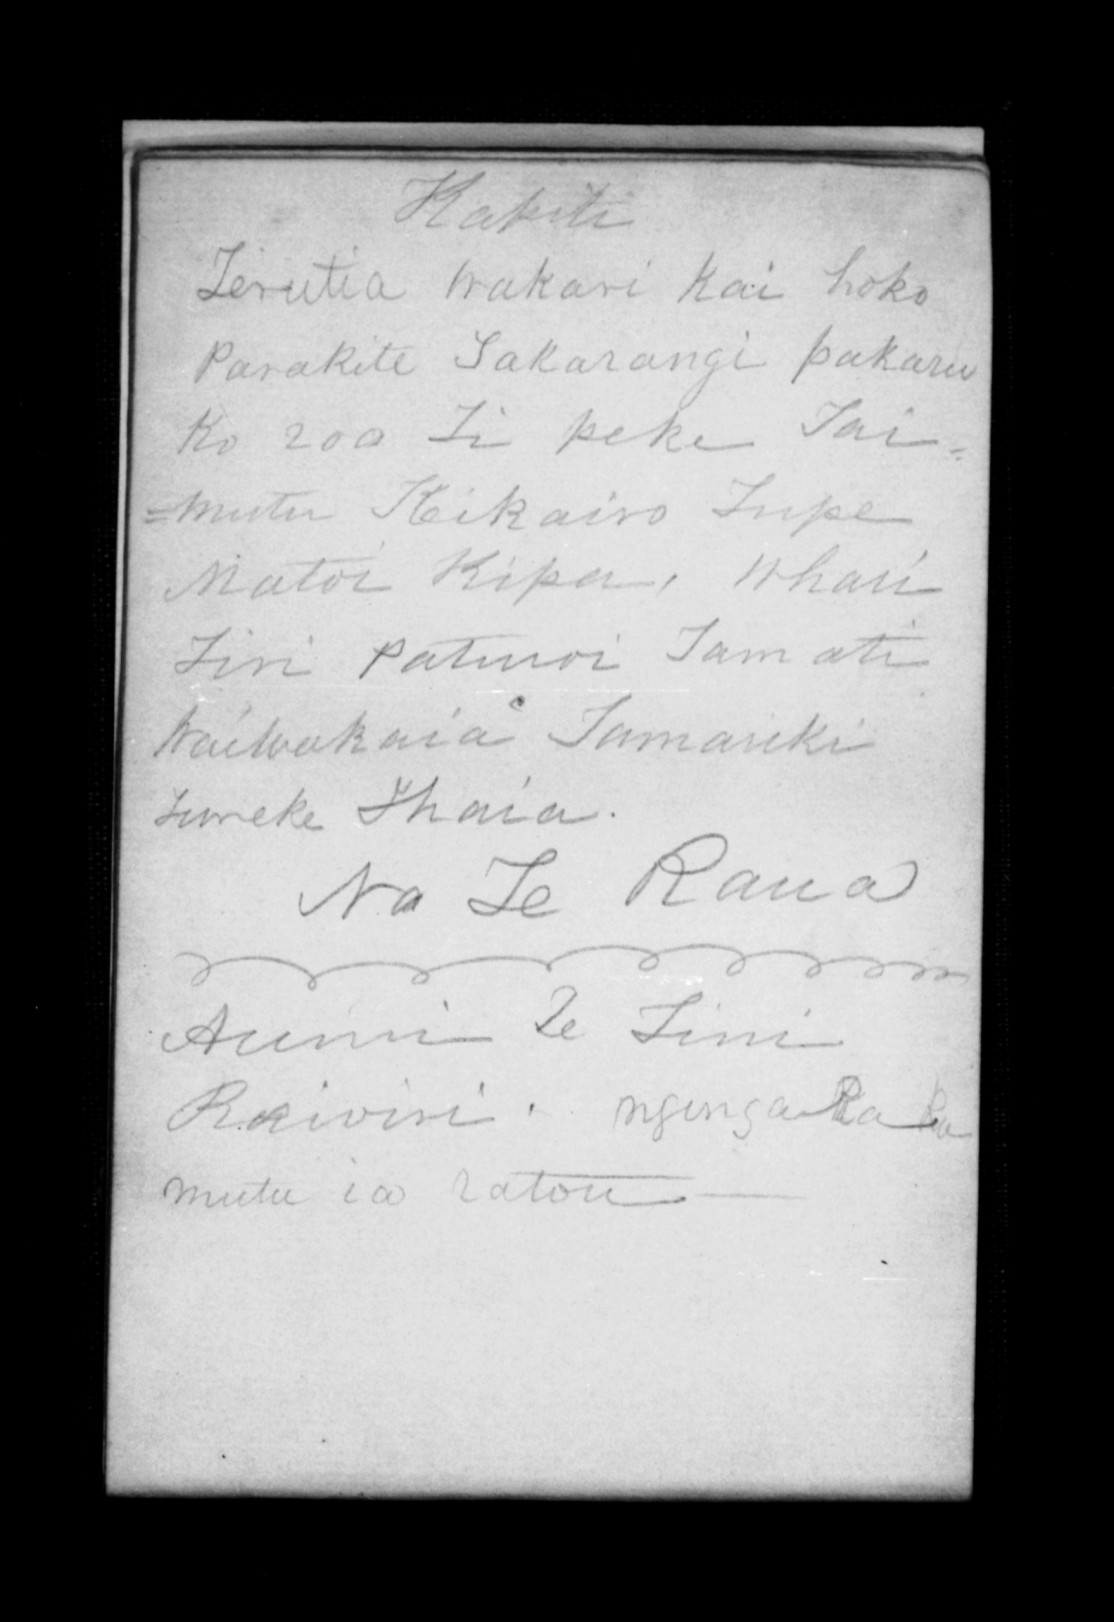 Kapiti
Terutia Wakari Kai hoko
Parakite Takarangi pakaru
Ko roa Ti peke Tai=
=mutu Kikairo Tupe
Matoi Kipa, Whari
Tiri Patuwoi Tamati
Waiwakaia Tamariki
tureke Ihaia.
Na Te Raua
Te Tini
Raiwiri.
mutu ia ratou